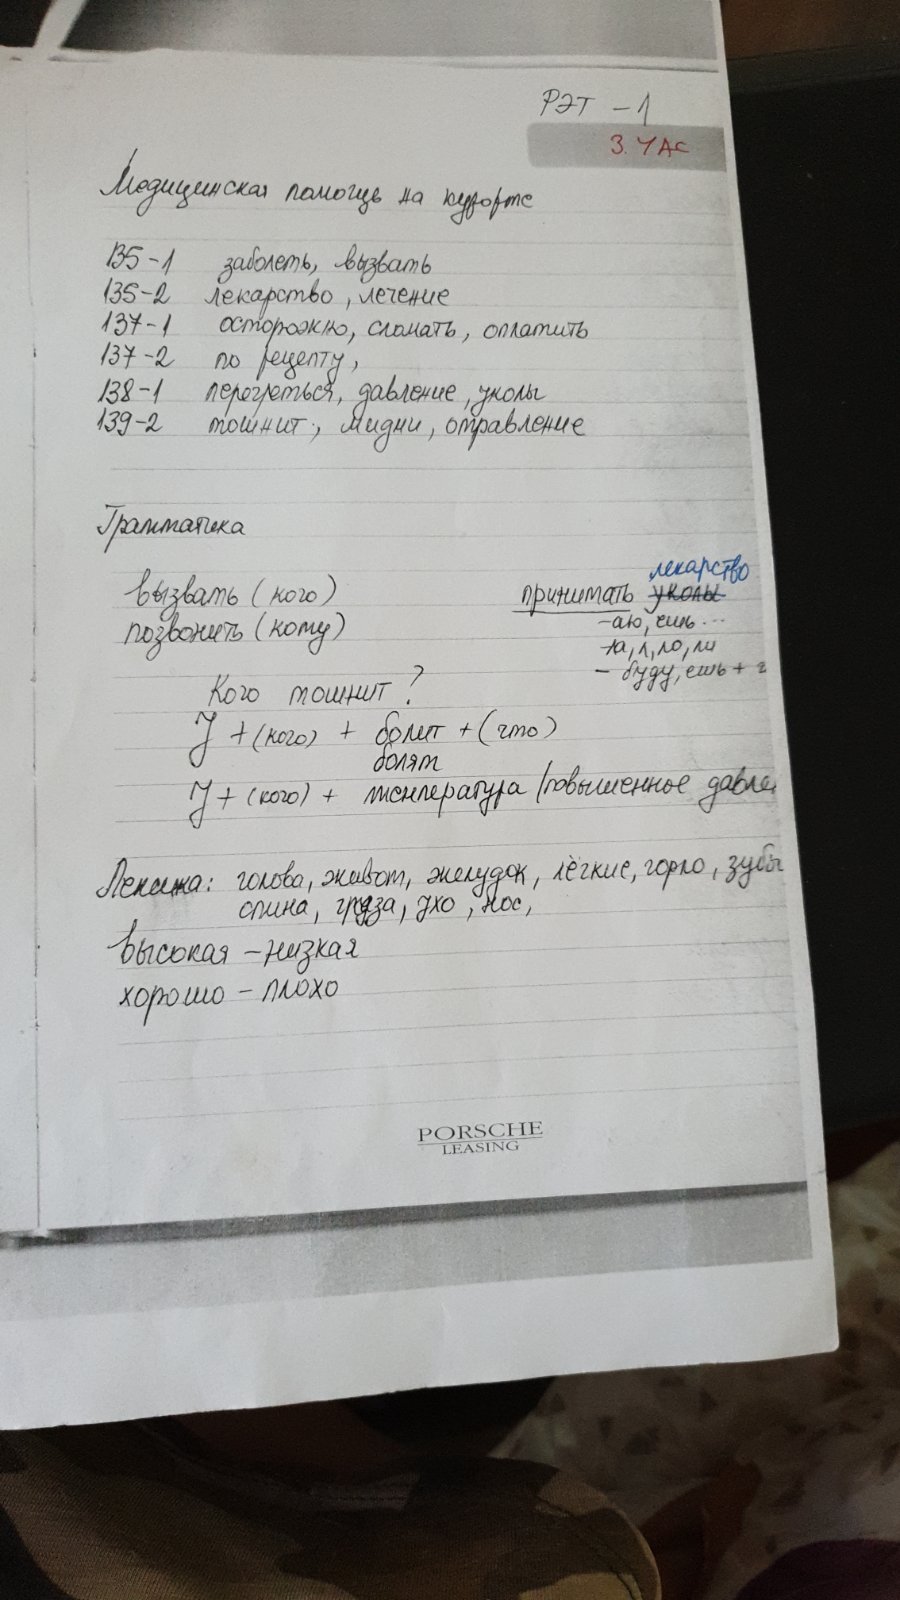 РЭТ - 1
3. ЧАС
Медицинская помощь на курорте
135-1 заболеть, вызвать
135-2 лекарство, лечение
137-1 осторожно, сломать, оплатить
137-2 по рецепту,
138-1 перогреться, давление, уколы
139-2 тошнит, мидии, отравление
Грамматика
вызвать (кого)
позвонить (кому)
лекарство
принимать уколы
-аю, ешь...
-ла, л, ло, ли
- буду, ешь +
Кого тошнит?
У + (кого) + болит + (что)
болят
У + (кого) + температура /повышенное давле
Лексика: голова, живот, желудок, лёгкие, горло, зубы
спина, ухо, нос,
высокая - низкая
хорошо - плохо
PORSCHE
LEASING